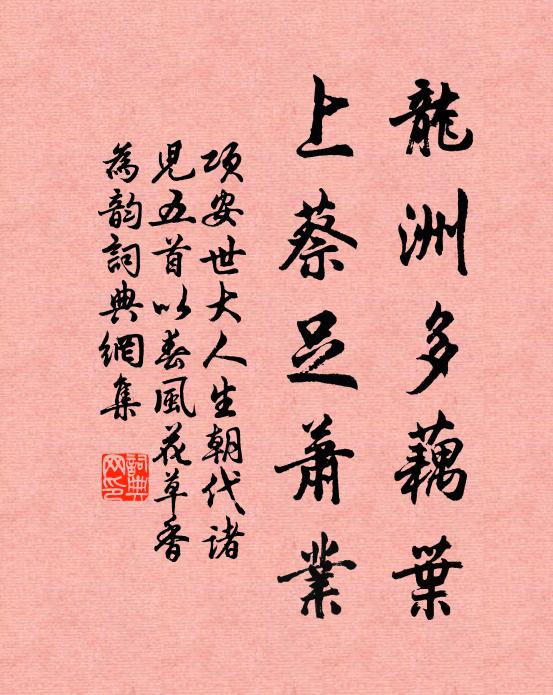 龍洲多藕葉
上蔡足蕭業
項安世大人生朝代諸
兒五首以春風花草香
為韵詞典網集
詞典网印